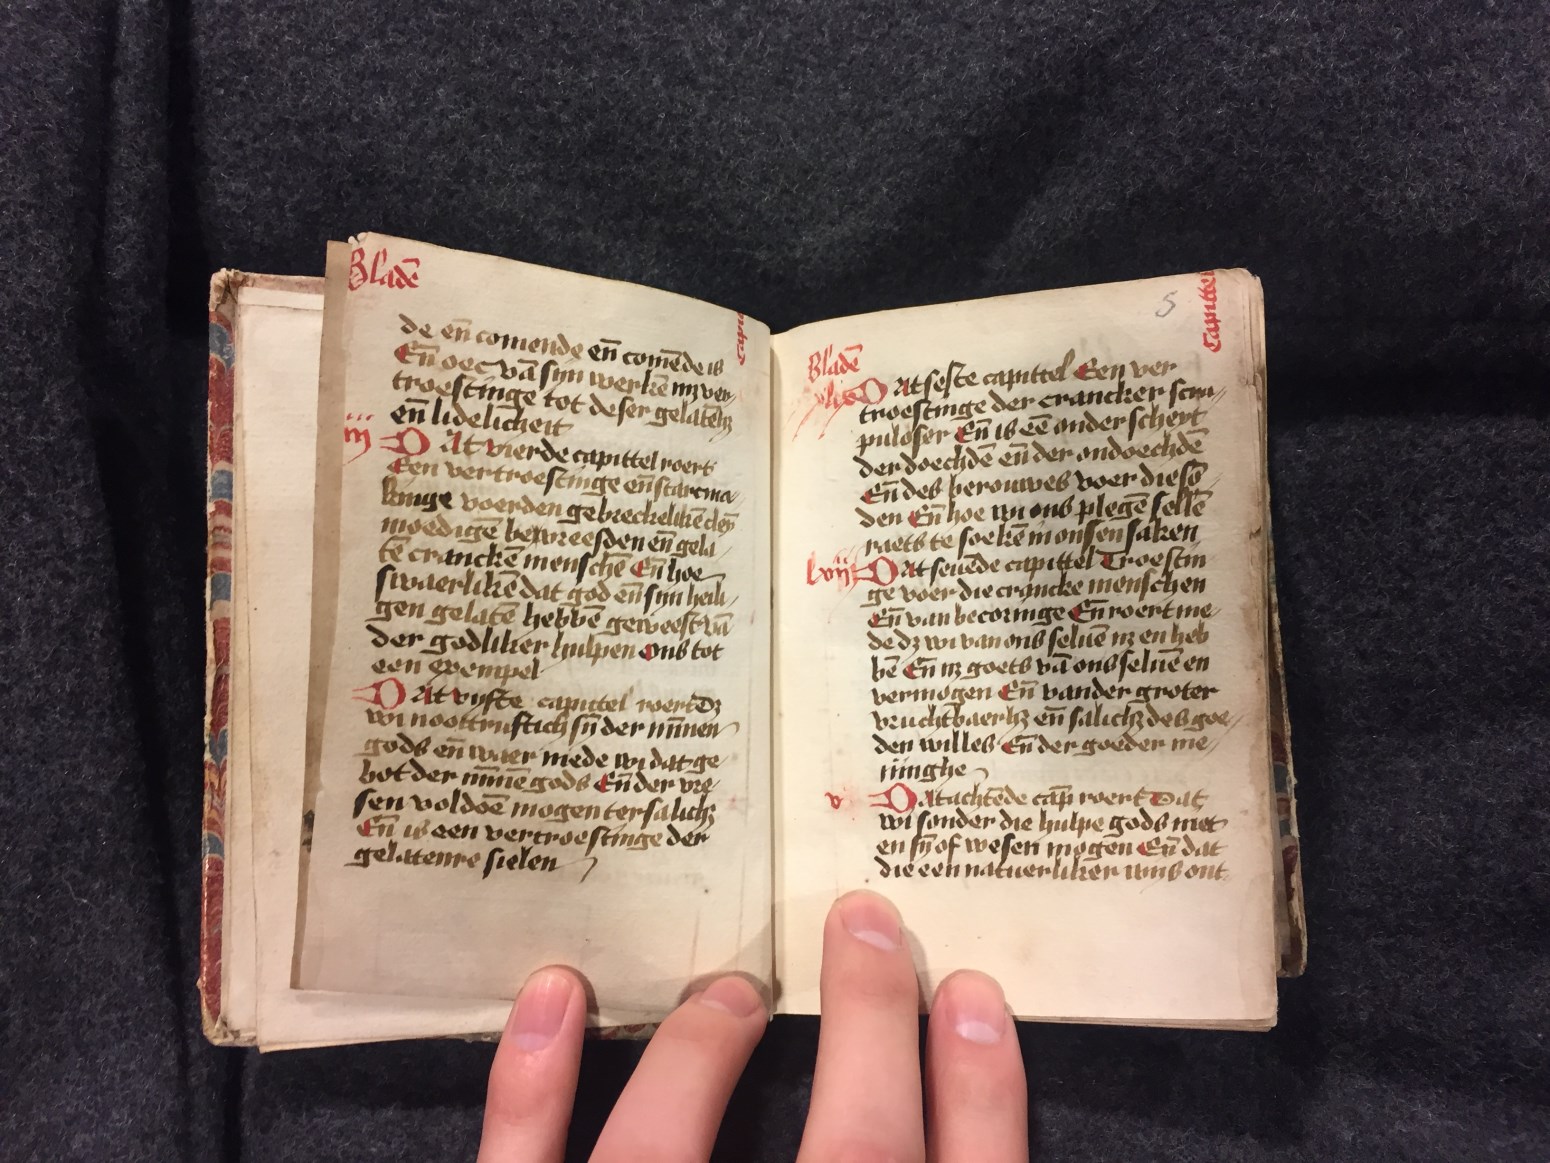 Bladē
Capit
de en̄ comende en̄ comēde is
En̄ oec vā sijn werkē nz ver
troestinge tot deser gelatēhz
en̄ lidelicheit
DAt vierde capittel roert
Een vertroestinge en̄ starcma
kinge voerden gebreckelikē cleÿ
moedigē bevreesden en̄ gela
tē cranckē menschē En̄ hoe
swaerlikē dat god en̄ sijn heili
gen gelatē hebbē geweest vā
der godliker hulpen Ons tot
een Exempel
DAt vijfte capittel roert Dz
wi noottruftich sÿ der mȳnen
gods en̄ waer mede wi dat ge
bot der mīne gods En̄ der vre
sen voldoē mogen ter salichz
En̄ is een vertroestinge der
gelatenre sielen
5
Capittel
Bladē
DAt seste capittel Een ver
troestinge der crancker scru
puloser En̄ is eē onderscheyt
der doechdē en̄ der ondoechdē
En̄ des berouwes voer die sō
den En̄ hoe wi ons plegē sellē
raets te soekē in onsen saken
lvij DAt seuēde capittel Troestin
ge voer die crancke menschen
En̄ van becoringe En̄ roert me
de dz wi van ons seluē nz en heb
bē En̄ nz goets vā ons seluē en
vermogen En̄ vander groter
vruchtbaerhz en̄ salichz des goe
den willes En̄ der goeder me
ninghe
DAt achtēde cap̄ roert Dat
wi sonder die hulpe gods niet
en sÿ of wesen mogen En̄ dat
die een natuerliker wijs ont